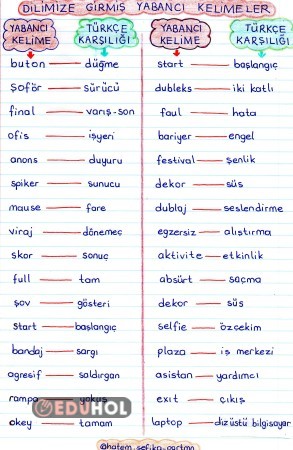 DİLİMİZE GİRMİŞ YABANCI KELİMELER
YABANCI KELİME
TÜRKÇE KARŞILIĞI
buton — düğme
şoför — sürücü
final — varış-son
ofis — işyeri
anons — duyuru
spiker — sunucu
mause — fare
viraj — dönemeç
skor — sonuç
full — tam
şov — gösteri
start — başlangıç
bandaj — sargı
agresif — saldırgan
rampa — yokuş
okey — tamam
YABANCI KELİME
TÜRKÇE KARŞILIĞI
start — başlangıç
dubleks — iki katlı
faul — hata
bariyer — engel
festival — şenlik
dekor — süs
dublaj — seslendirme
egzersiz — alıştırma
aktivite — etkinlik
absürt — saçma
dekor — süs
selfie — özçekim
plaza — iş merkezi
asistan — yardımcı
exit — çıkış
laptop — dizüstü bilgisayar
EDUHOL